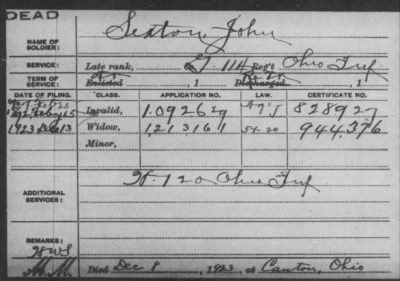 DEAD
NAME OF SOLDIER: Sexton, John
SERVICE: Late rank, G 114 Reg't Ohio Inf
TERM OF SERVICE: Enlisted , 1 Discharged , 1
DATE OF FILING. CLASS. APPLICATION NO. LAW. CERTIFICATE NO.
Invalid, 1.092629 828927
1923 Widow, 1,213161 944.376
Minor,
ADDITIONAL SERVICES: H. 120 Ohio Inf
REMARKS:
Died Dec. 8, 1923, at Canton, Ohio